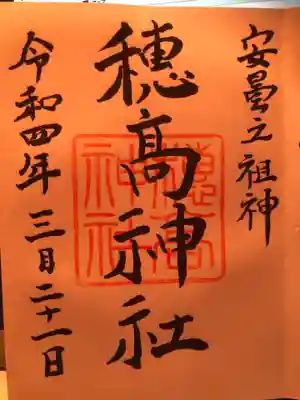 安曇之祖神
穂髙神社
穂髙神社
令和四年 三月二十一日